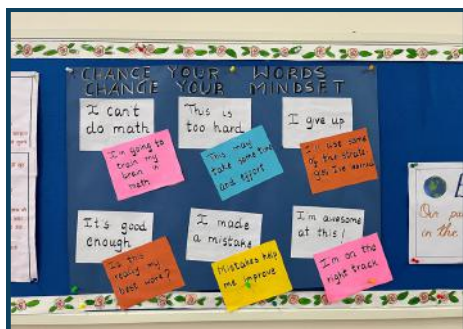 CHANGE YOUR WORDS
CHANGE YOUR MINDSET
I can't
do math
I'm going to
train my
brain in
math
This is
too hard
This may
take some time
and effort
I give up
I'll use some
of the strate-
gies I've learned
It's good
enough
Is this
really my
best work?
I made
a mistake
Mistakes help
me improve
I'm awesome
at this!
I'm on the
right track
Our pu
in the